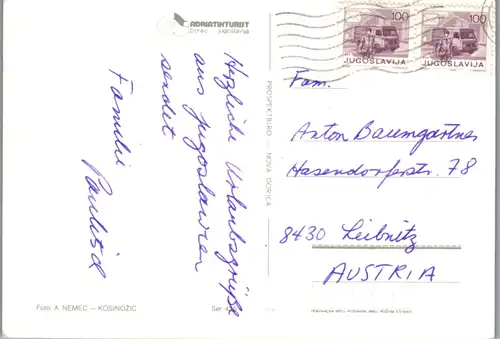 ADRIATIKTURIST
Herzliche Urlaubsgrüße
aus Jugoslawien
sendet
Familie
Foto: A. NEMEC — KOSINOŽIC
Ser.
PROSPEKTBIRO — NOVA GORICA
100
JUGOSLAVIJA
100
JUGOSLAVIJA
Fam.
Anton Baumgartner
Hasendorferstr. 78
8430 Leibnitz
AUSTRIA